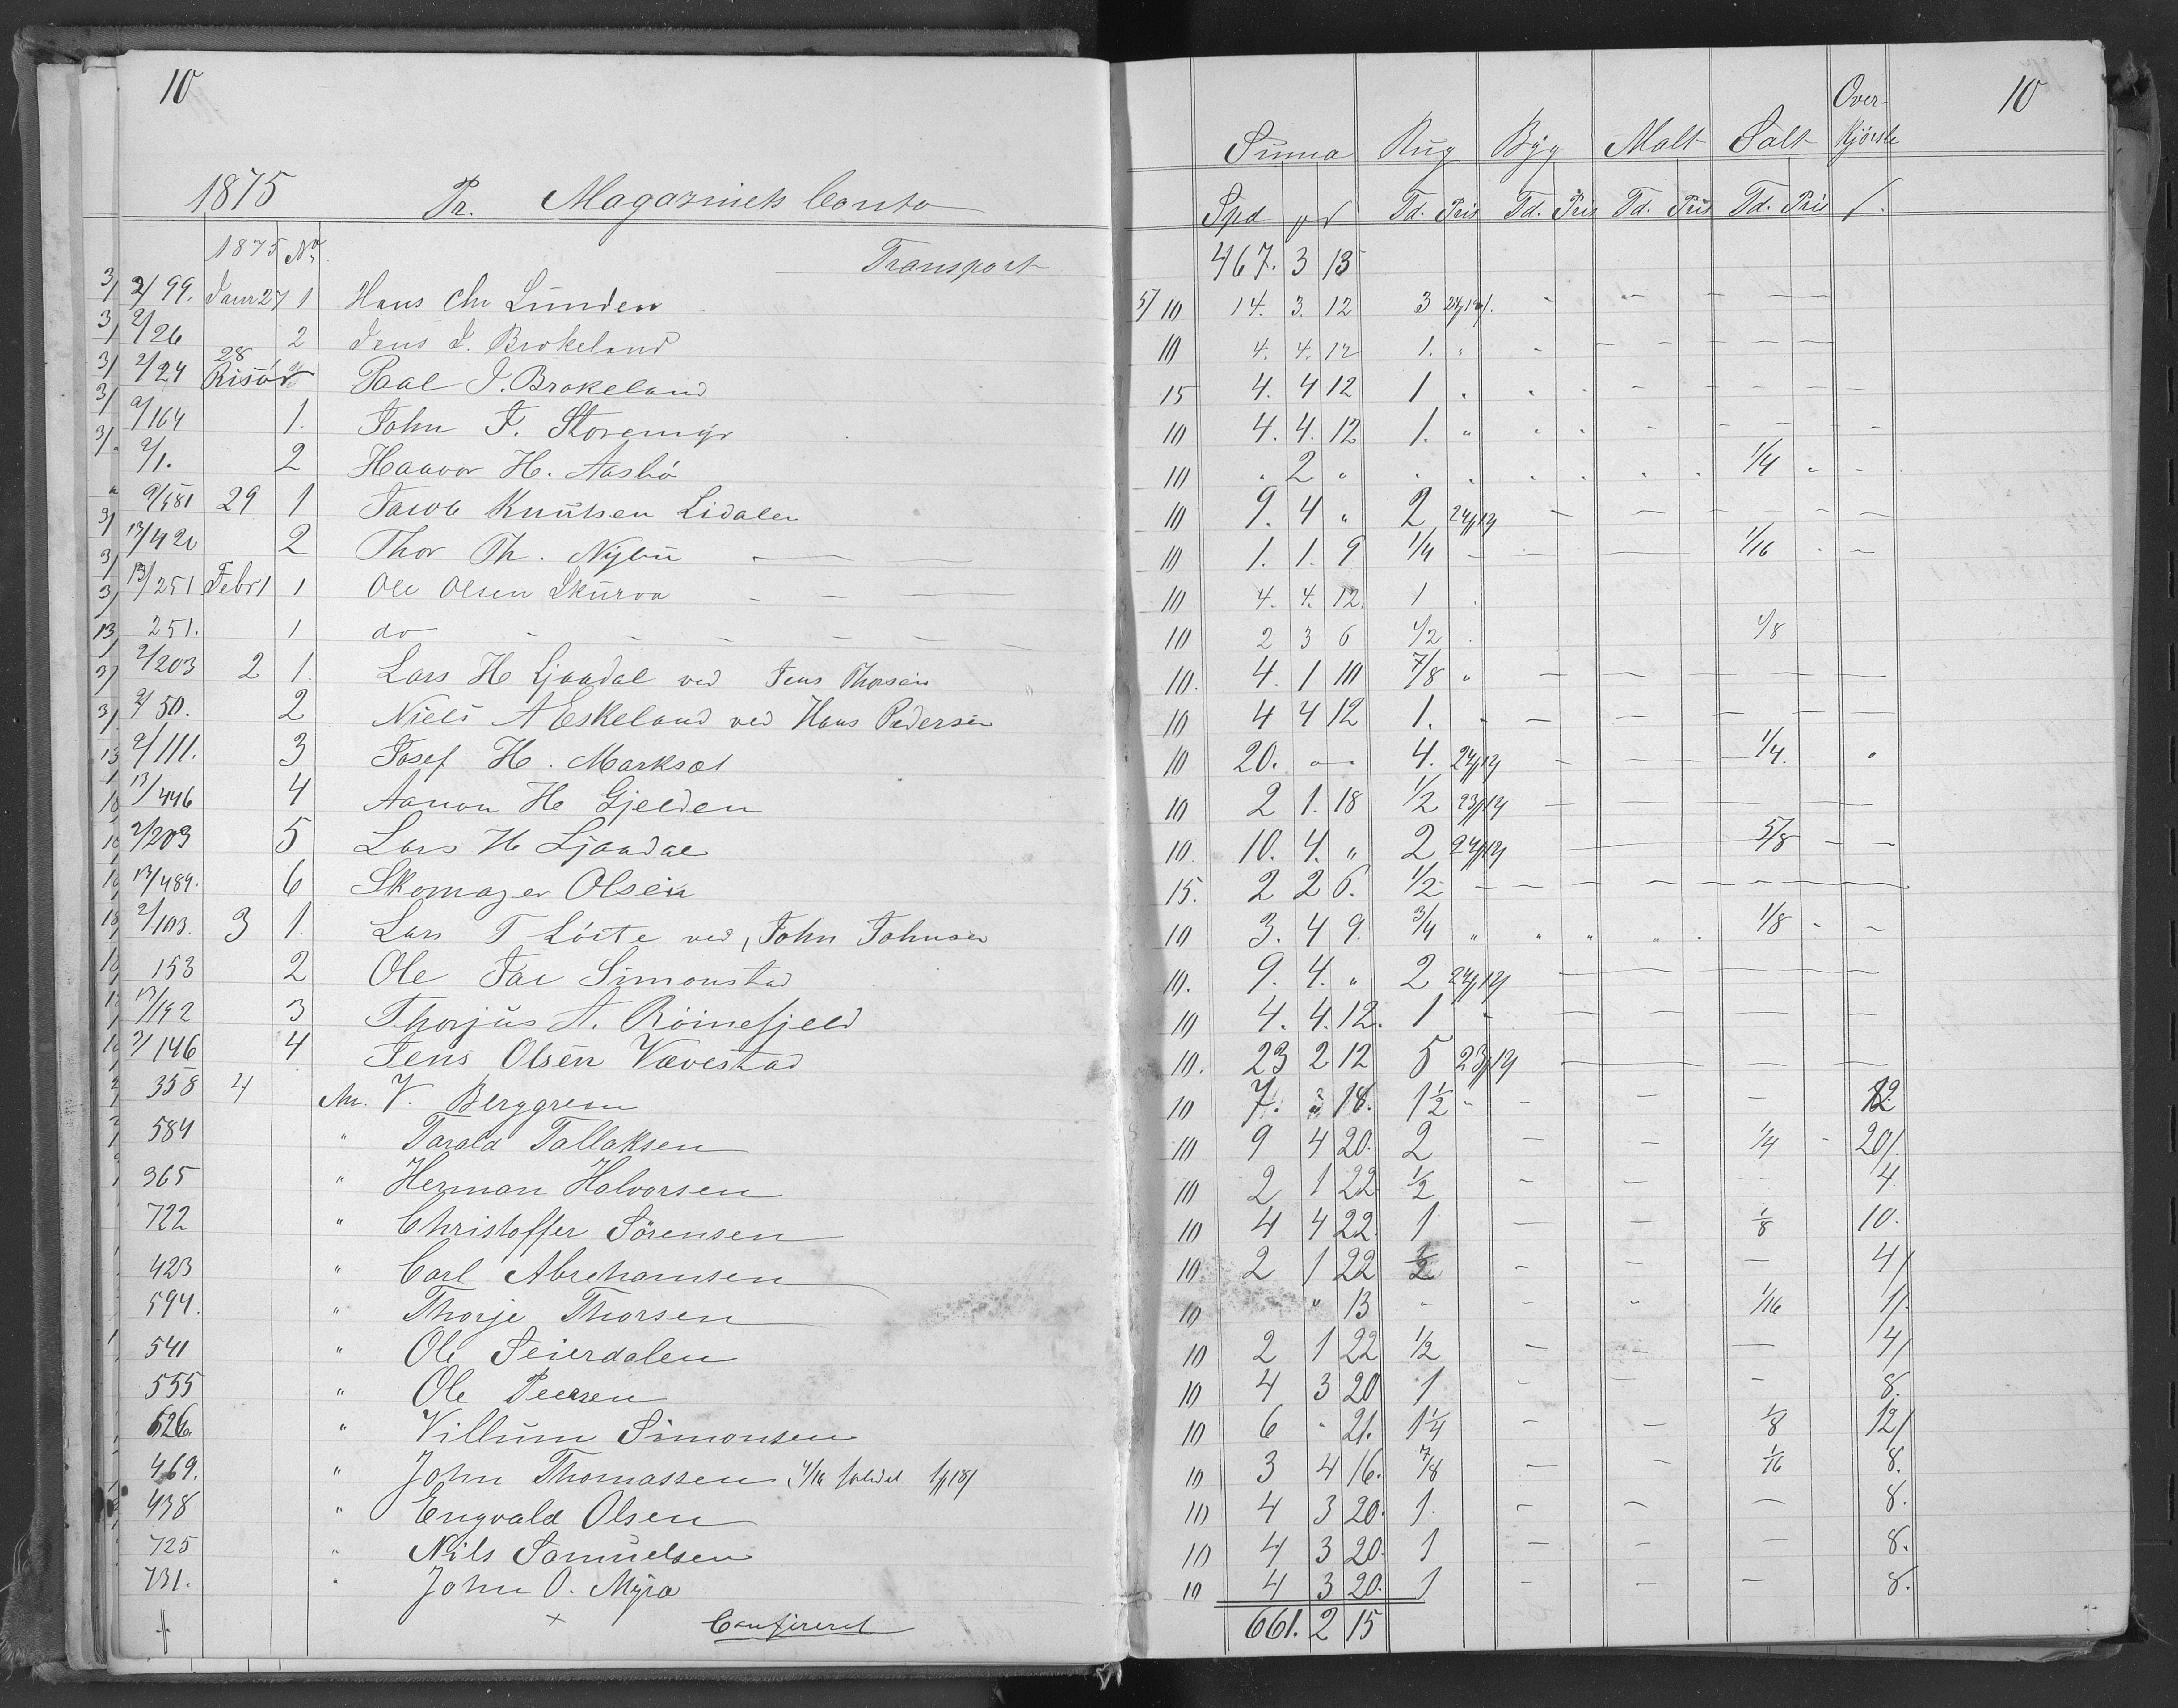 10
1875 Pr. Magazinets Conto
1875 No. Transport
3/ 2/99. Jaur 27 1 Hans Chr Lunden
3/ 2/26 2 Jens J. Brokeland
3/ 2/24 28 Risör Paal J. Brokeland
3/ 2/164 1. John T. Storemyr
3/ 2/1. 2 Haavor H. Aasbö
2/581 29 1 Jacob Knutsen Lidalen
3/ 13/420 2 Thor Th. Nybu
3/ 13/251 Febr 1 1 Ole Olsen Skurva
251. 1 do
2/203 2 1. Lars H Ljaadal ved Jens Thorsen
3/ 2/50. 2 Niels A Eskeland ved Hans Pedersen
2/111. 3 Josef H. Marksæt
13/446 4 Aanon H Gjelden
2/203 5 Lars H Ljaadal
13/489. 6 Skomager Olsen
2/103. 3 1. Lars T Löite ved, John Johnsen
153 2 Ole Jac Simonstad
13/192 3 Thorjus A. Röinefjeld
2/146 4 Jens Olsen Vævestad
358 4 An. V. Berggren
584 " Tarald Tallaksen
365 " Herman Halvorsen
722 " Christoffer Sörensen
423 " Carl Abrahamsen
594. " Thorje Thorsen
541 " Ole Seierdalen
555 " Ole Peersen
526 " Villum Simonsen
469. " John Thomassen
438 " Engvald Olsen
725 " Nils Samuelsen
731. " John O. Myra
+ Confereret
10
Over-
Suma Rug Byg Malt Salt Kjørsle
Spd Td. Pris Td. Pris Td. Pris Td. Pris
467. 3 13
5/10 14. 3. 12 3
10 4. 4. 12 1. "
15 4. 4 12 1 "
10 4. 4. 12 1. "
10 " 2 " 1/4
10 9. 4 " 2 24/19
10 1. 1. 9 1/4 — 1/16
10 4. 4. 12. 1
10 2 3 6 1/2 1/8
10. 4. 1 10 7/8 "
10 4 4 12 1. "
10 20. — 4. 24/19 1/4.
10 2 1. 18 1/2 23/19
10. 10. 4. " 2 24/19 5/8
15. 2 2 6. 1/2
10 3. 4 9. 3/4 " 1/8
10. 9. 4. " 2 24/19
10 4. 4. 12. 1
10. 23 2 12 5 23/19
10 7. " 18. 1 1/2 12
10 9 4 20. 2 1/4 20/
10 2 1 22 1/2 4
10 4 4 22. 1 1/8 10.
10 2 1 22 1/2 4/
10 " 13 1/16 1/
10 2 1 22 1/2 4/
10 4 3 20 1 8.
10 6 - 21. 1 1/4 1/8 12/
10 3 4 16. 7/8 1/16 8.
10 4 3 20. 1. 8.
10 4 3 20. 1 8.
10 4 3 20. 1 8.
661. 2 15